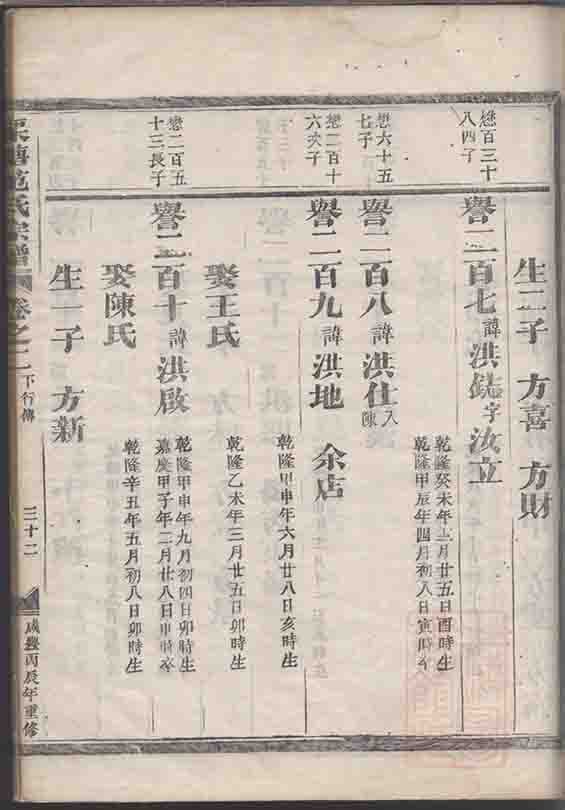 生二子 方喜 方財
懋百三十
八四子
譽二百七 諱洪銑字汝立
乾隆癸未年十二月廿五日酉時生
乾隆甲辰年四月初八日寅時卒
懋六十五
七子
譽二百八 諱洪仕 入陳
懋二百十
六次子
譽二百九 諱洪地 余店
乾隆甲申年六月廿八日亥時生
娶王氏
乾隆乙未年三月廿五日卯時生
懋二百五
十三長子
譽二百十 諱洪啟
乾隆甲申年九月初四日卯時生
嘉慶甲子年二月廿八日申時卒
娶陳氏
乾隆辛丑年五月初八日卯時生
生一子 方新
范氏宗譜 卷之二 下行傳 三十二 咸豐丙辰年重修